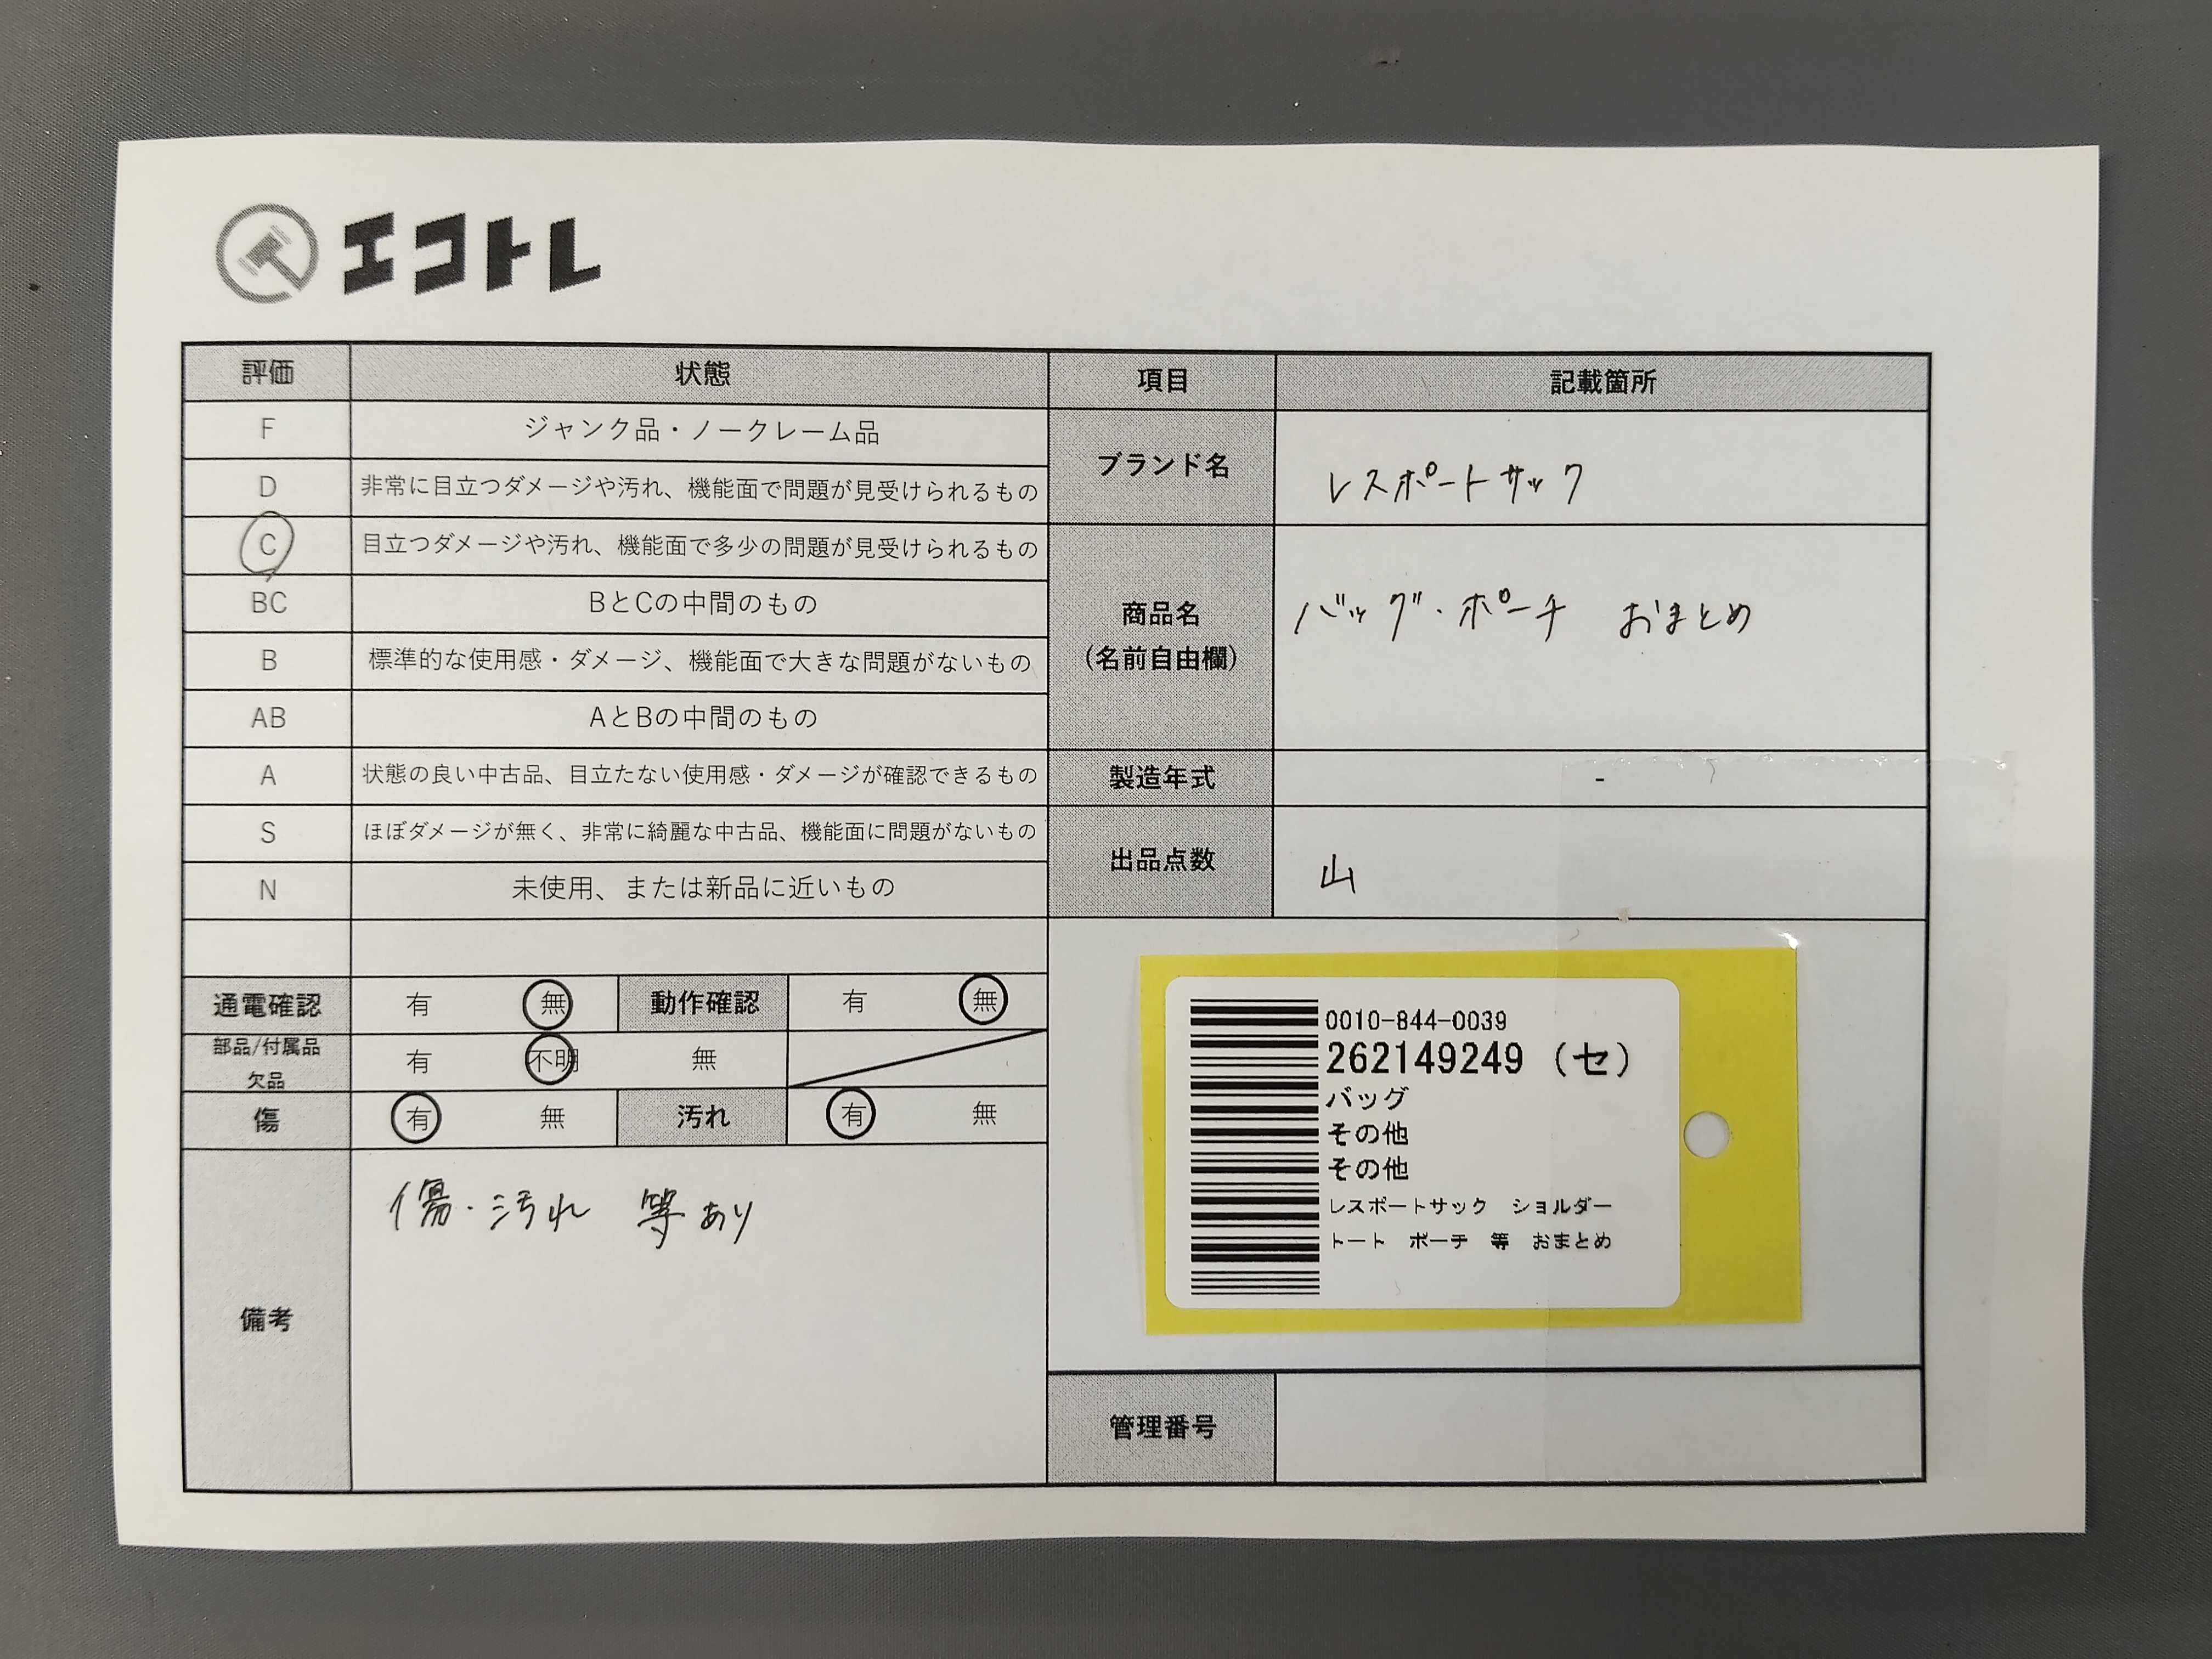 エコトレ
評価 状態 項目 記載箇所
F ジャンク品・ノークレーム品
D 非常に目立つダメージや汚れ、機能面で問題が見受けられるもの
C 目立つダメージや汚れ、機能面で多少の問題が見受けられるもの
BC BとCの中間のもの
B 標準的な使用感・ダメージ、機能面で大きな問題がないもの
AB AとBの中間のもの
A 状態の良い中古品、目立たない使用感・ダメージが確認できるもの
S ほぼダメージが無く、非常に綺麗な中古品、機能面に問題がないもの
N 未使用、または新品に近いもの
通電確認 有 無 動作確認 有 無
部品/付属品
欠品 有 不明 無
傷 有 無 汚れ 有 無
備考 傷・汚れ 等あり
ブランド名 レスポートサック
商品名
(名前自由欄) バッグ・ポーチ おまとめ
製造年式 -
出品点数 山
0010-844-0039
262149249 (セ)
バッグ
その他
その他
レスポートサック ショルダー
トート ポーチ 等 おまとめ
管理番号